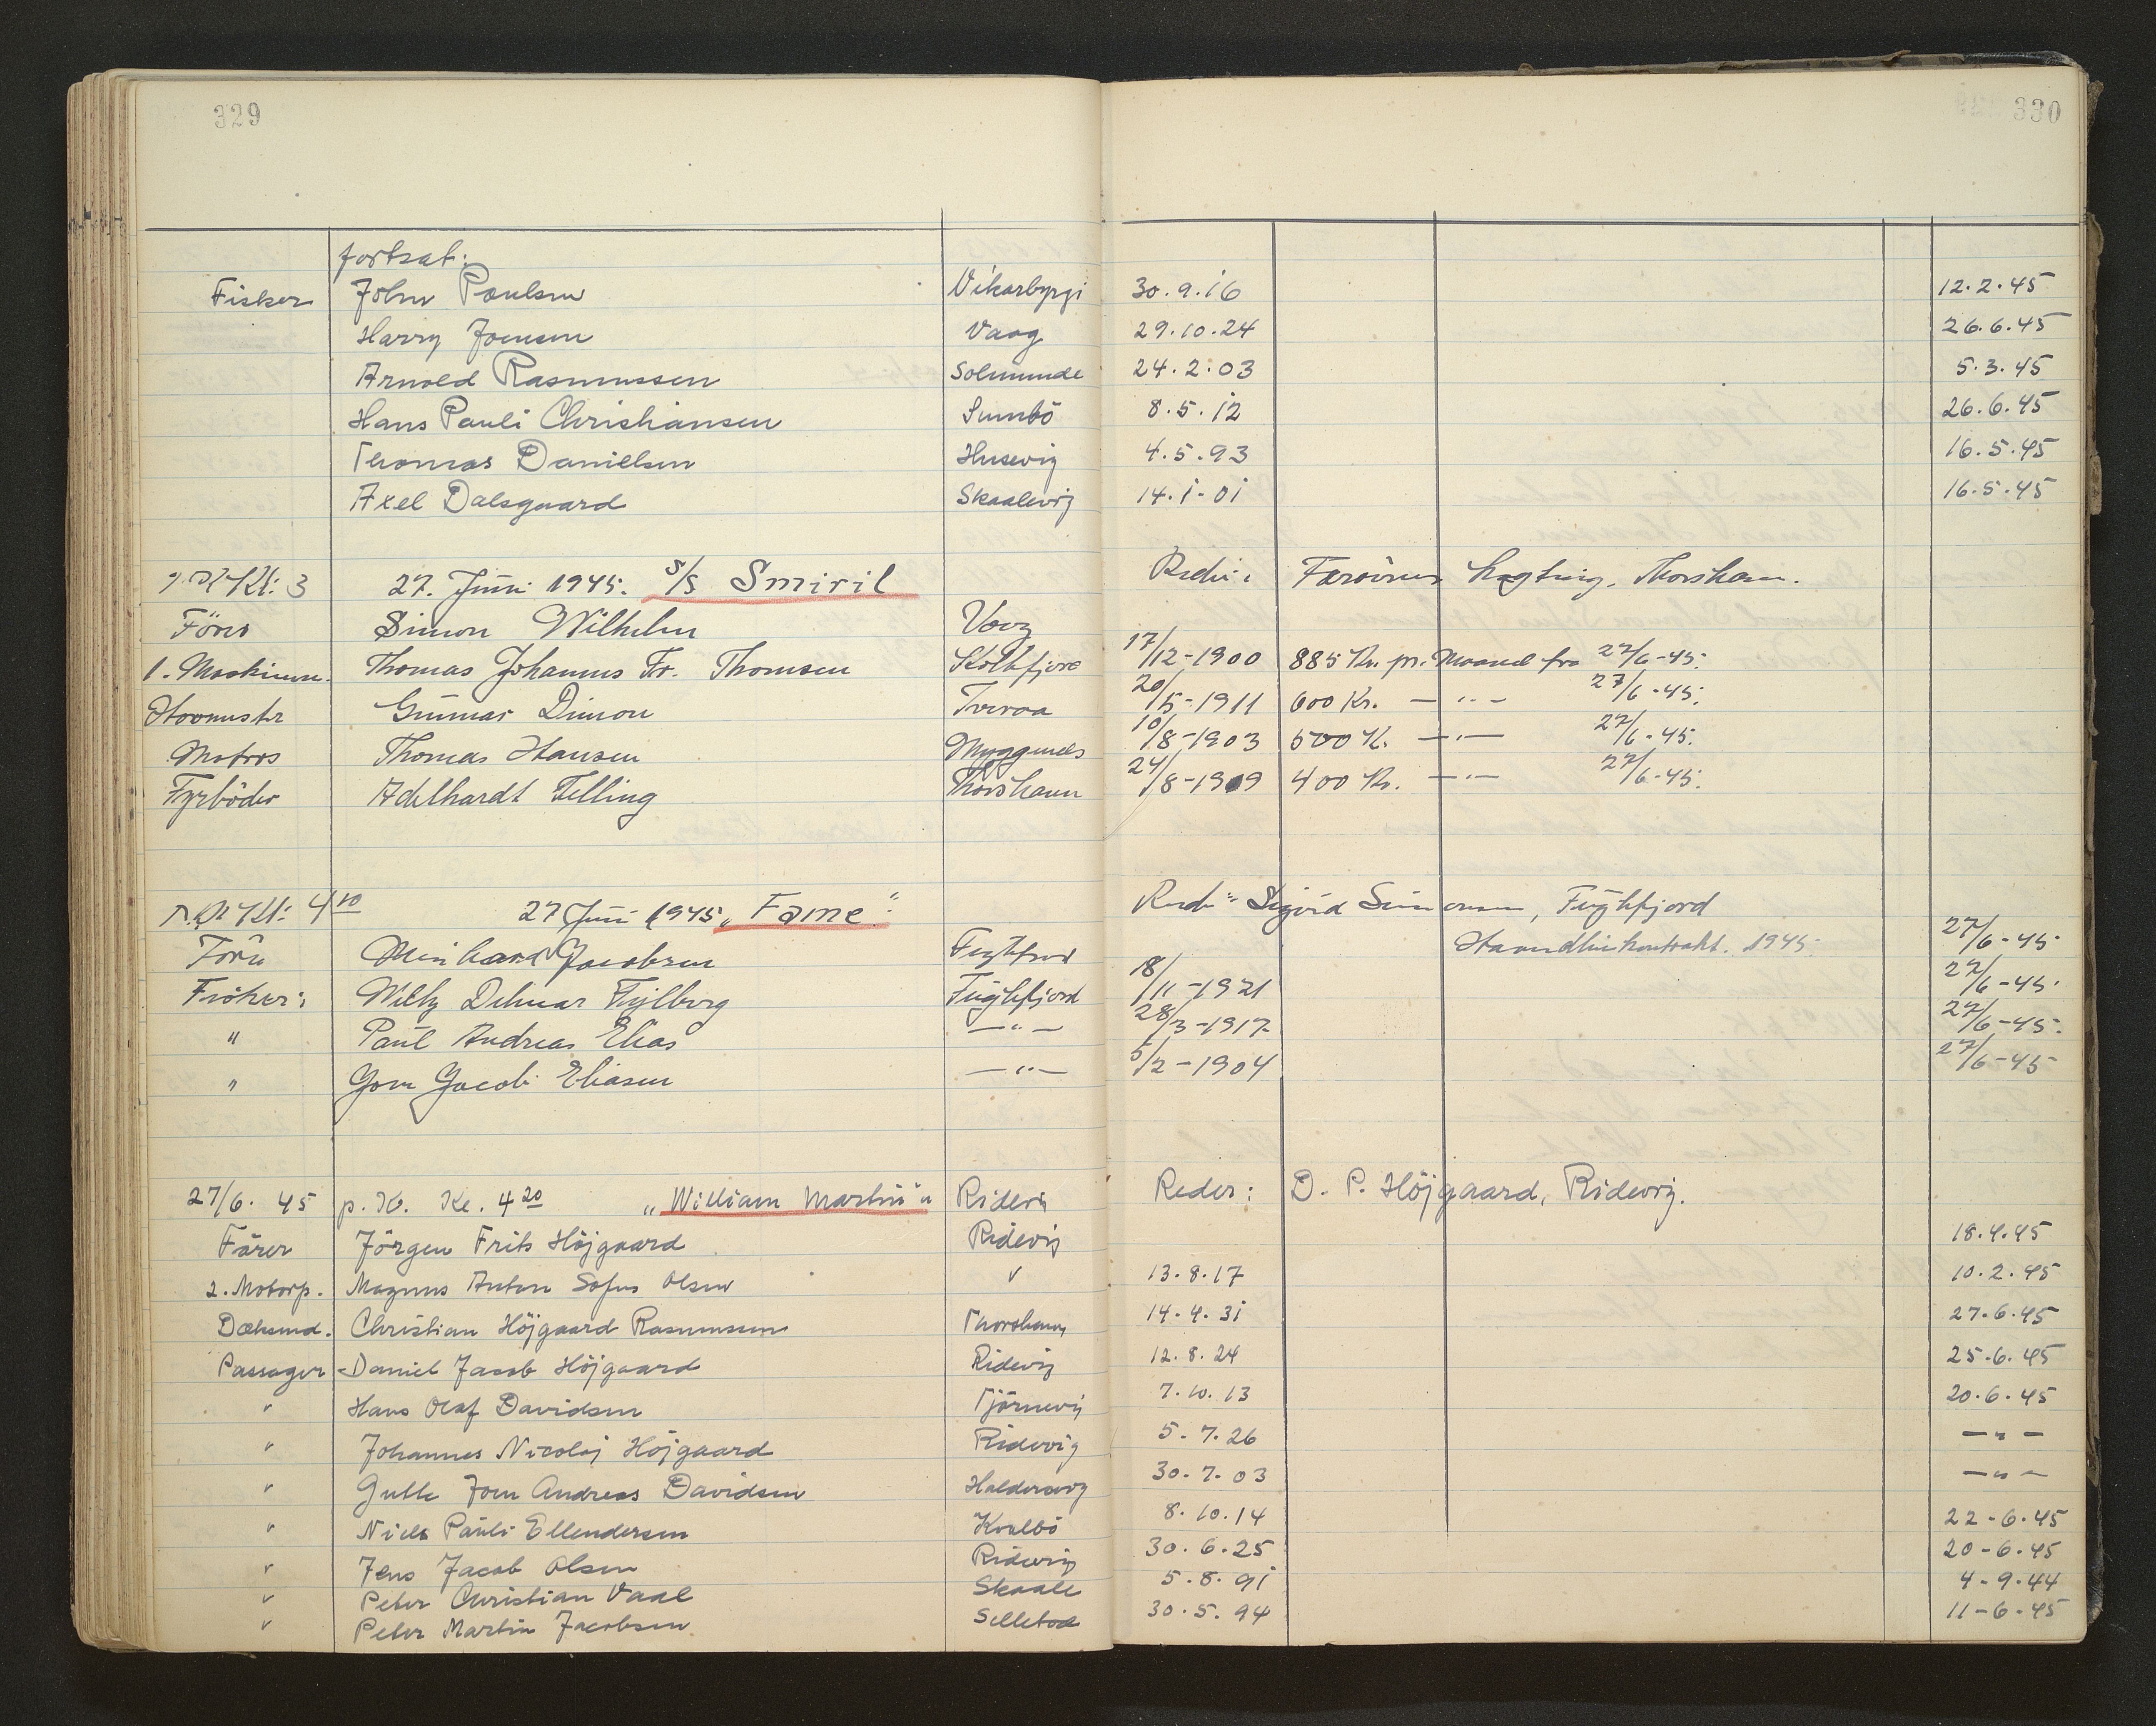 329
330
fortsat:
Fisker John Poulsen Vikarbyrgi 30.9.16 12.2.45
Harry Joensen Vaag 29.10.24 26.6.45
Arnold Rasmussen Solmunde 24.2.03 5.3.45
Hans Pauli Christiansen Sumbö 8.5.12 26.6.45
Thomas Danielsen Husevig 4.5.93 16.5.45
Axel Dalsgaard Skaalevig 14.1.01 16.5.45
Kl: 3 27. Juni 1945. S/S Smiril Rederi: Færöernes Lagting, Thorshavn.
Förer Simon Wilhelm Vaag
1. Maskinm. Thomas Johannus Fr. Thomsen Kollefjord 17/12-1900 885 Kr. pr. Maaned fra 27/6-45.
Hovmester Gunnar Dimon Tveraa 20/5-1911 600 Kr. — " — 27/6-45.
Matros Thomas Hansen Myggenæs 10/8-1903 500 K. — " — 27/6-45.
Fyrböder Adelhardt Felling Thorshavn 24/8-1909 400 Kr. — " — 27/6-45.
Kl: 4 10 27 Juni 1945 „Fame" Rederi Sigurd Simonsen, Fuglefjord
Förer Meinhard Jacobsen Fuglefjord 1945. 27/6-45.
Fisker: Willy Delmar Fuglefjord 18/11-1921 27/6-45.
" Paul Andreas Elias — " — 28/3-1917 27/6-45.
" Jacob Eliasen — " — 5/2-1904 27/6-45
27/6. 45 p. K. Kl. 4 20 „William Martin" Ridevig Reder: D. P. Höjgaard, Ridevig.
Förer Jörgen Frits Höjgaard Ridevig 18.4.45
2. Motorp. Magnus Anton Sofus Olsen " 13.8.17 10.2.45
Dæksmd. Christian Höjgaard Rasmussen Thorshavn 14.4.31 27.6.45
Passager Daniel Jacob Höjgaard Ridevig 12.8.24 25.6.45
" Hans Olaf Davidsen Tjörnevig 7.10.13 20.6.45
" Johannes Nicolaj Höjgaard Ridevig 5.7.26 — " —
" Gutte Joen Andreas Davidsen Haldersvig 30.7.03 — " —
" Niels Pauli Ellendersen Kvalbö 8.10.14 22-6-45
" Jens Jacob Olsen Ridevig 30.6.25 20-6-45
" Peter Christian Vaal Skaale 5.8.91 4-9-44
" Peter Martin Jacobsen 30.5.94 11-6-45